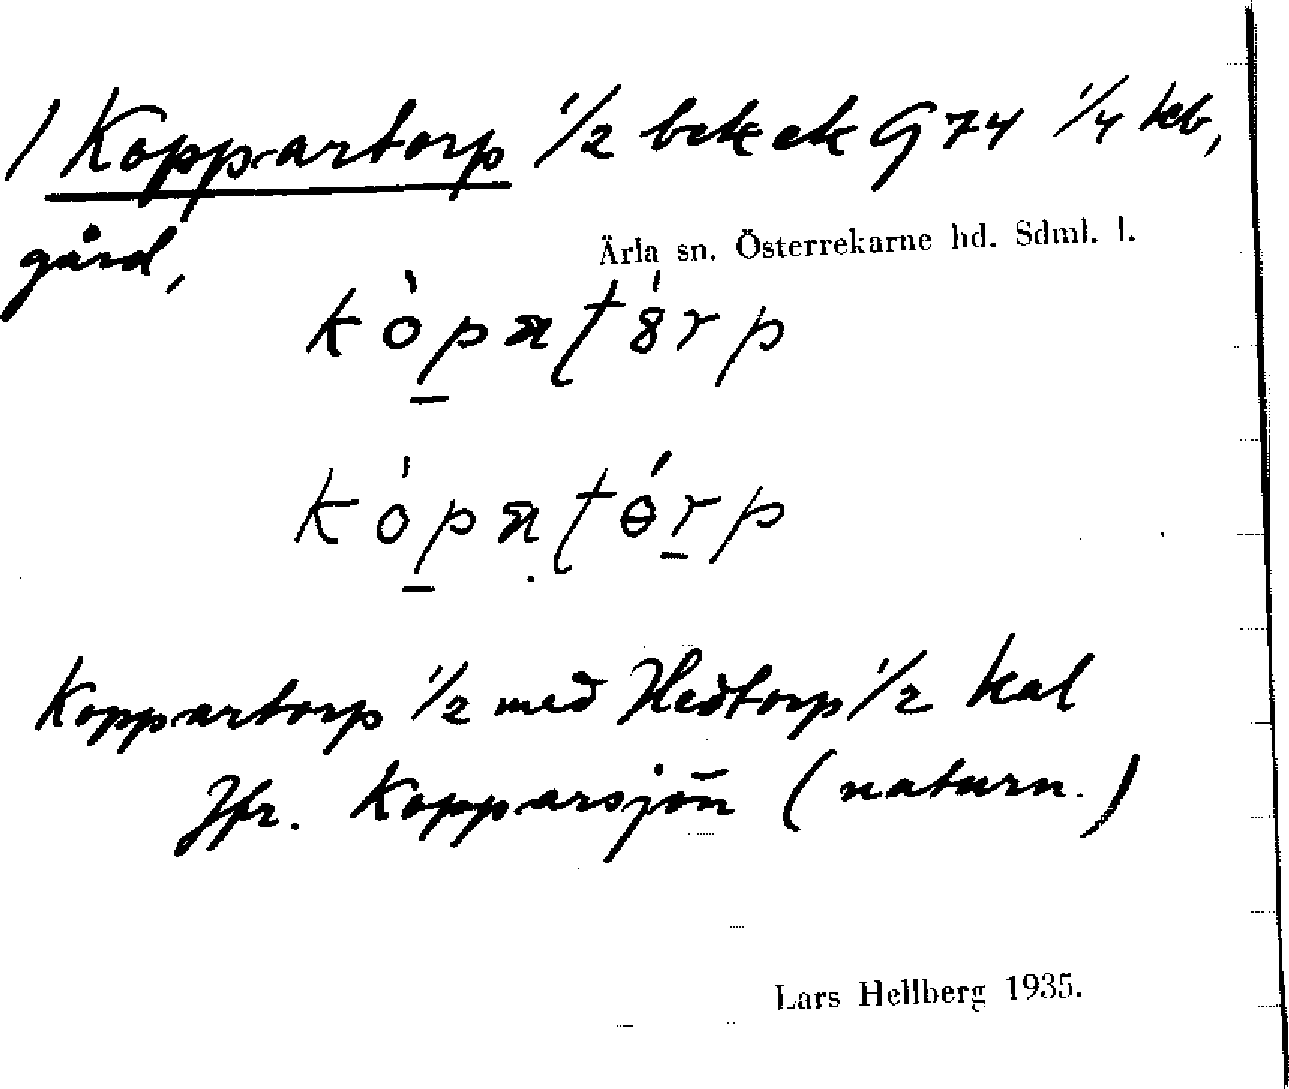 1 Koppartorp 1/2 bek ek G 74 1/4 kb,
gård,
Ärla sn. Österrekarne hd. Sdml. l.
Koppartorp 1/2 med Hedtorp 1/2 kal
Jfr. Kopparsjön (naturn.)
Lars Hellberg 1935.